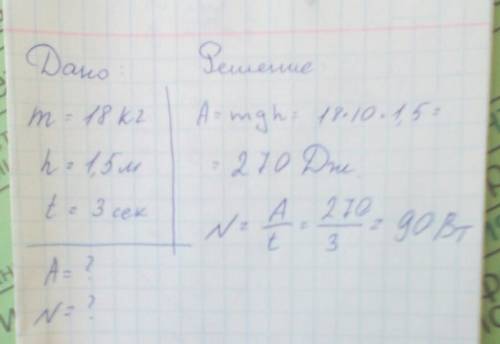 Дано:
m = 18 кг
h = 1,5 м
t = 3 сек
A = ?
N = ?
Решение
A = mgh = 18·10·1,5 =
= 270 Дж
N = A/t = 270/3 = 90 Вт